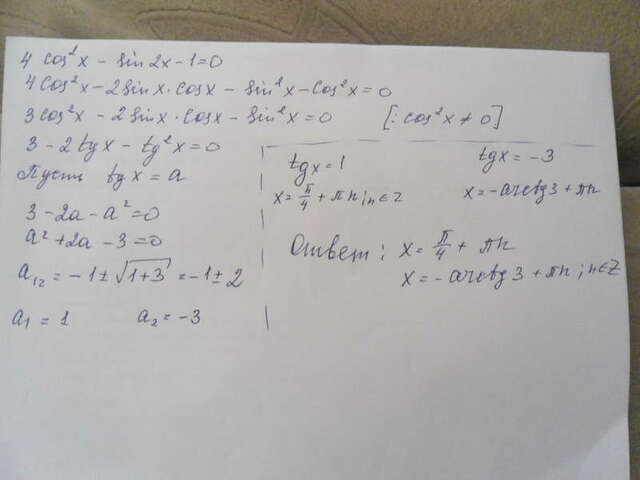 4 cos²x - sin 2x - 1 = 0
4 cos²x - 2 sin x · cos x - sin²x - cos²x = 0
3 cos²x - 2 sin x · cos x - sin²x = 0 [: cos²x ≠ 0]
3 - 2 tg x - tg²x = 0
Пусть tg x = a
3 - 2a - a² = 0
a² + 2a - 3 = 0
a₁₂ = -1 ± √(1+3) = -1 ± 2
a₁ = 1 a₂ = -3
tg x = 1 tg x = -3
x = π/4 + πn ; n ∈ Z x = -arctg 3 + πn
Ответ : x = π/4 + πn
x = -arctg 3 + πn ; n ∈ Z